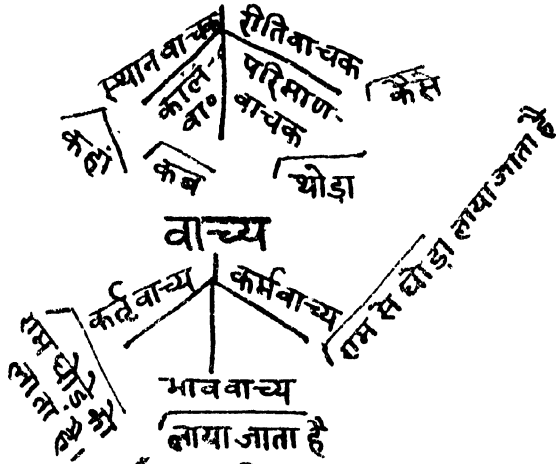 स्थान वाचक
रीतिवाचक
काल-
वा०
परिमाण-
वाचक
कैसे
कहाँ
कब
थोड़ा
वाच्य
कर्तृवाच्य
कर्मवाच्य
राम घोड़े को
लाता है।
राम से घोड़ा लाया जाता है
भाववाच्य
लाया जाता है